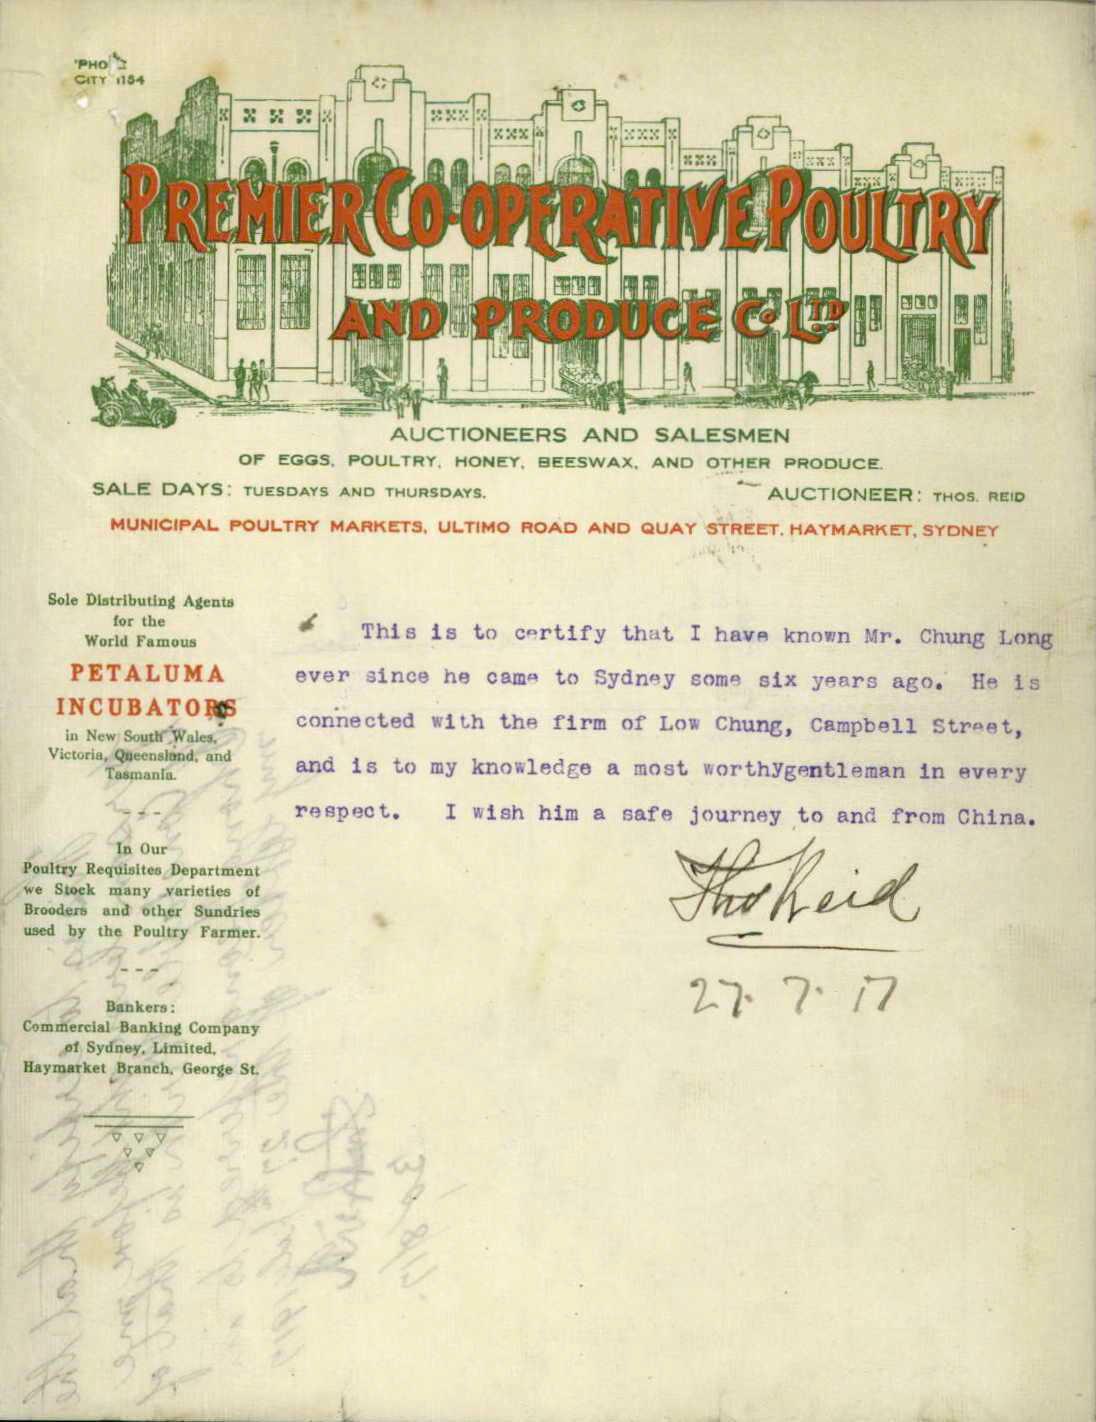 'PHO
CITY 1154
PREMIER CO-OPERATIVE POULTRY
AND PRODUCE Co LTD
AUCTIONEERS AND SALESMEN
OF EGGS, POULTRY, HONEY, BEESWAX, AND OTHER PRODUCE.
SALE DAYS: TUESDAYS AND THURSDAYS.
AUCTIONEER: THOS. REID
MUNICIPAL POULTRY MARKETS, ULTIMO ROAD AND QUAY STREET, HAYMARKET, SYDNEY
Sole Distributing Agents
for the
World Famous
PETALUMA
INCUBATORS
in New South Wales,
Victoria, Queensland, and
Tasmania.
In Our
Poultry Requisites Department
we Stock many varieties of
Brooders and other Sundries
used by the Poultry Farmer.
Bankers:
Commercial Banking Company
of Sydney, Limited,
Haymarket Branch, George St.
This is to certify that I have known Mr. Chung Long
ever since he came to Sydney some six years ago. He is
connected with the firm of Low Chung, Campbell Street,
and is to my knowledge a most worthygentleman in every
respect. I wish him a safe journey to and from China.
Thos Reid
27. 7. 17